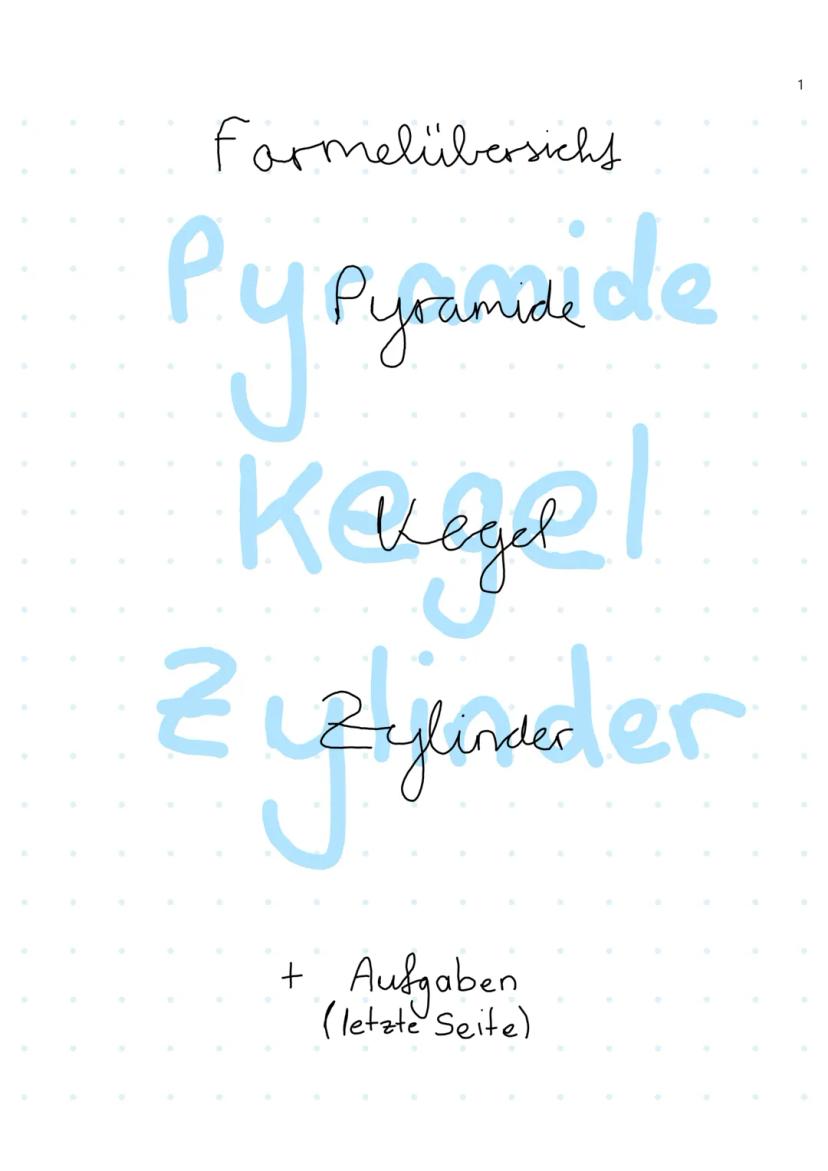 1
Formelübersicht
Pyramide
Pyramide
Kegel
Kegel
Zylinder
Zylinder
+ Aufgaben
(letzte Seite)